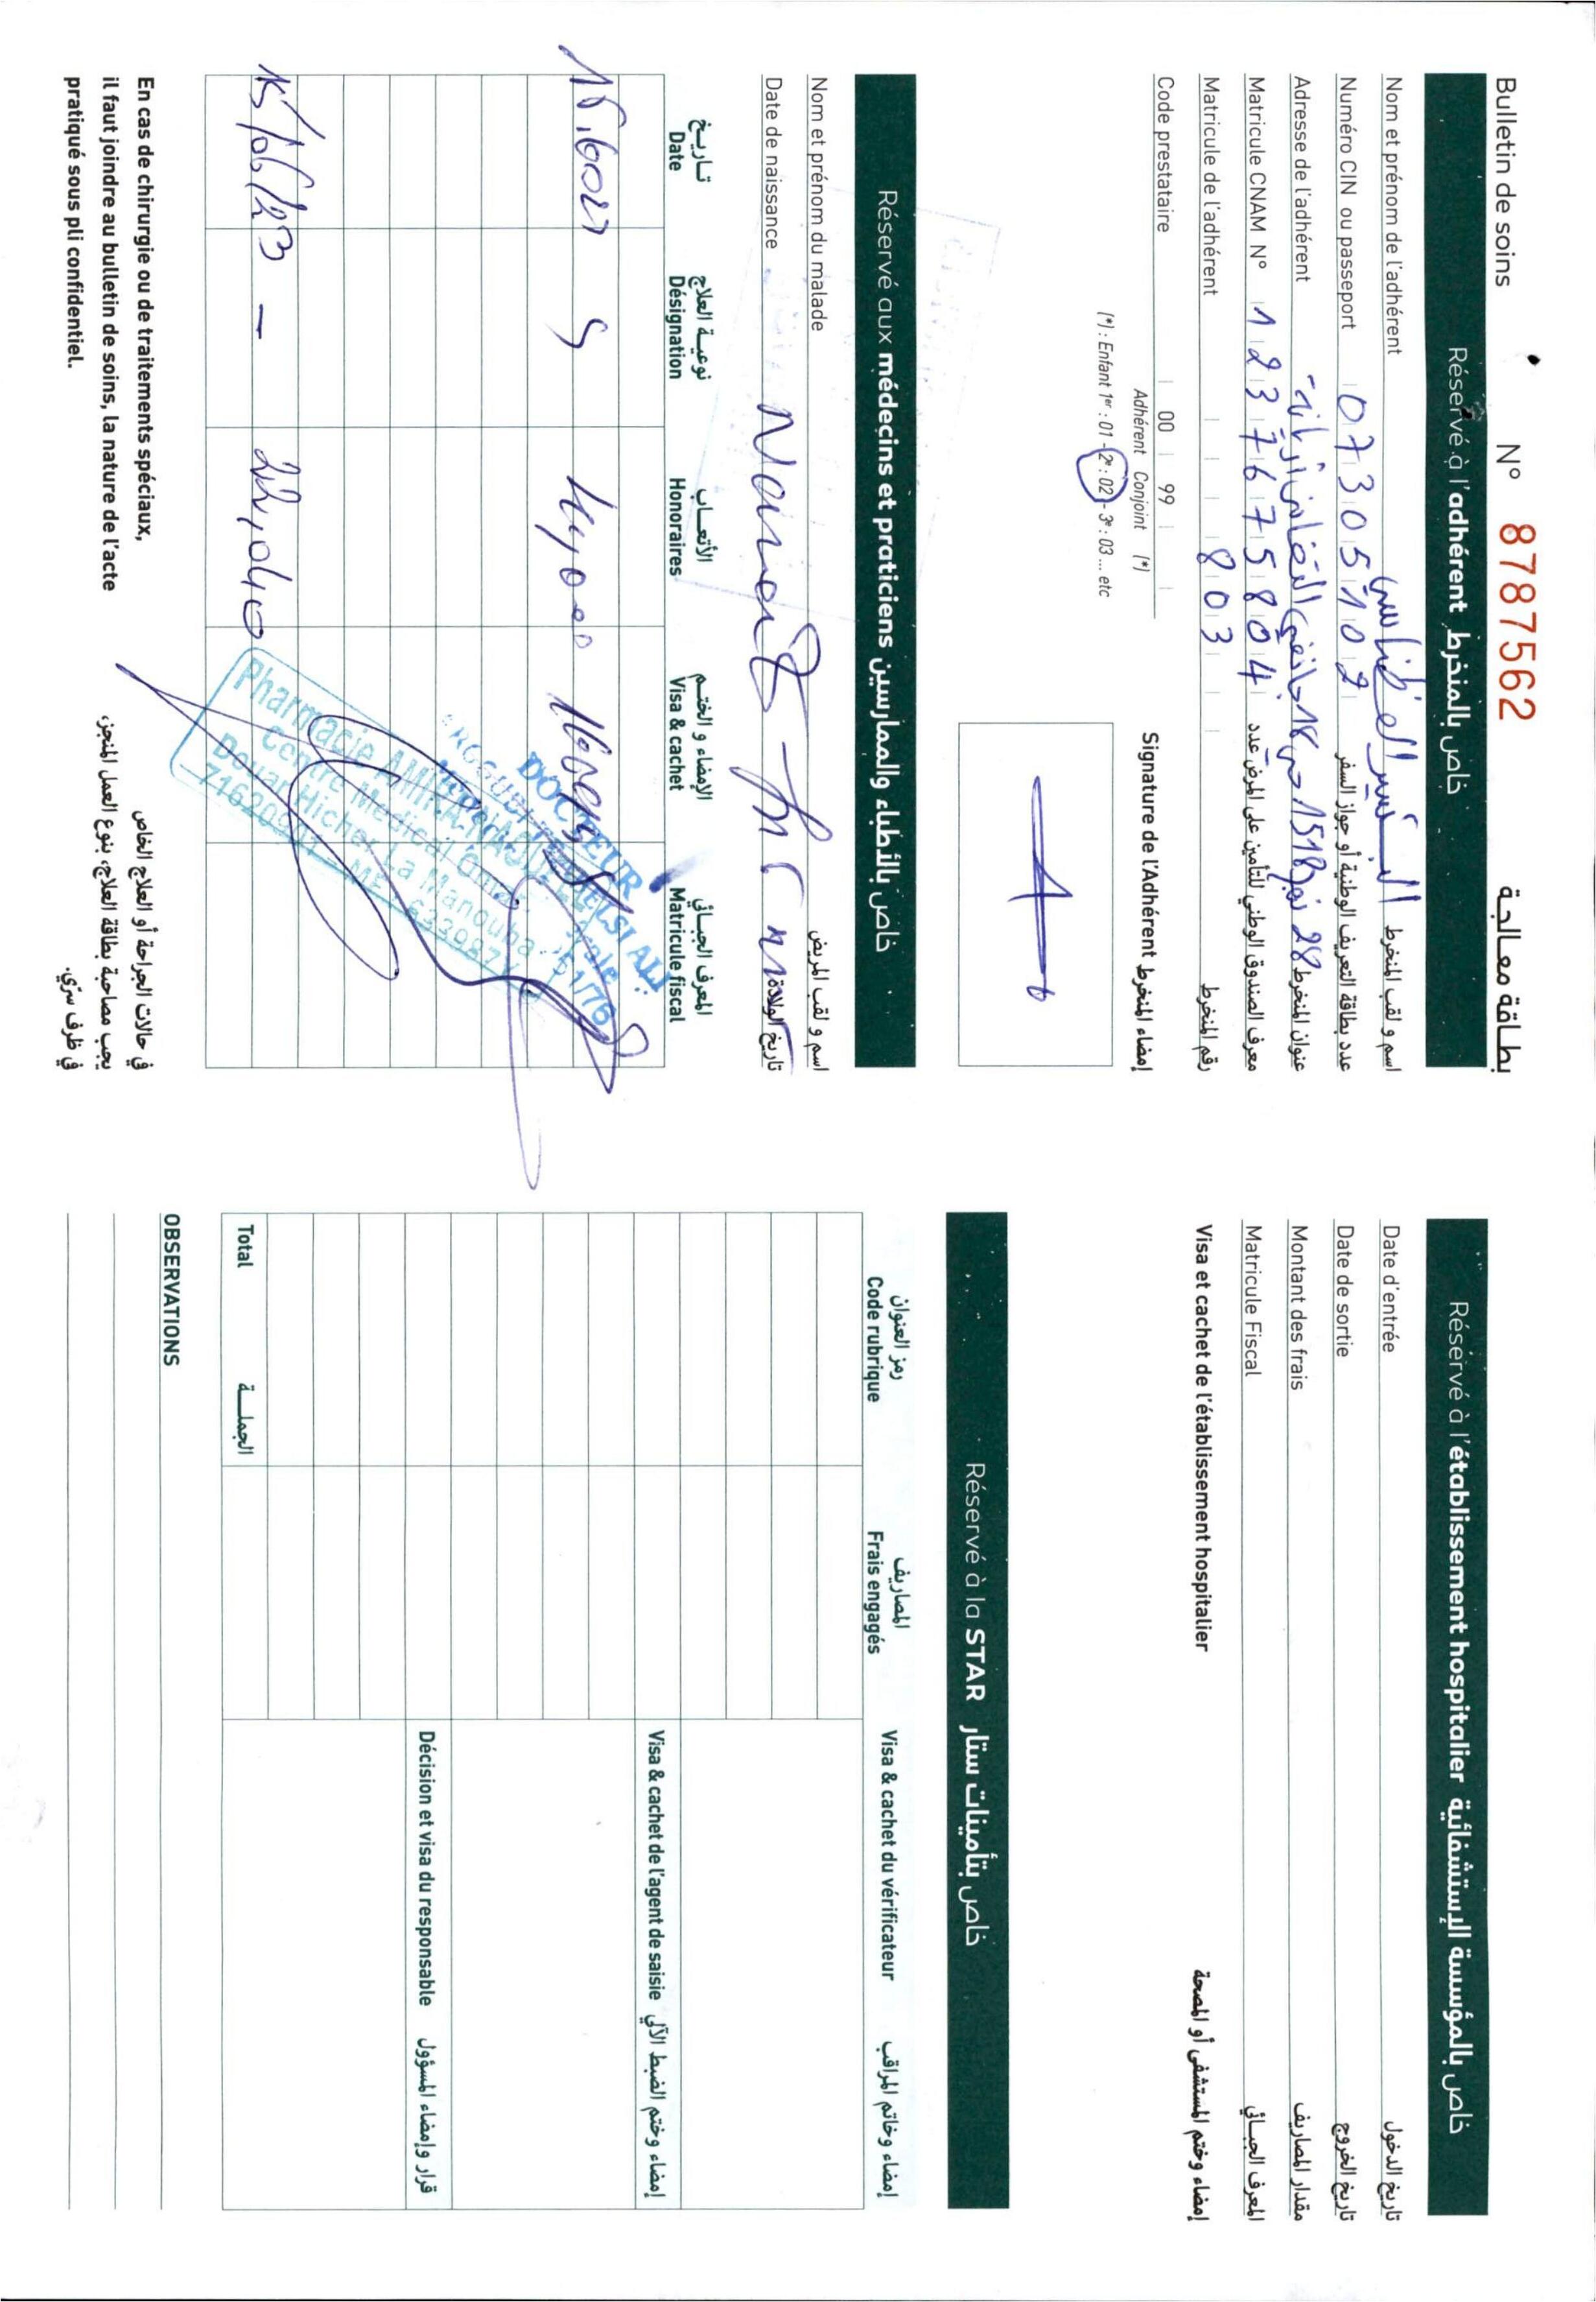 Bulletin de soins N° 8787562 بطاقة معالجة
Réservé à l'adhérent خاص بالمنخرط
Nom et prénom de l'adhérent البشير الغناسي اسم و لقب المنخرط
Numéro CIN ou passeport 07305102 عدد بطاقة التعريف الوطنية أو جواز السفر
Adresse de l'adhérent 28 نهج 1518 حي 18 جانفي التضامن أريانة عنوان المنخرط
Matricule CNAM N° 12376775804 معرف الصندوق الوطني للتأمين على المرض عدد
Matricule de l'adhérent 803 رقم المنخرط
Code prestataire 00 99
Adhérent Conjoint (*)
(*) : Enfant 1er : 01 - 2e : 02 - 3e : 03 ... etc
Signature de l'Adhérent إمضاء المنخرط
Réservé aux médecins et praticiens خاص بالأطباء والممارسين
Nom et prénom du malade اسم و لقب المريض
Date de naissance تاريخ الولادة
تاريخ نوعية العلاج الأتعاب الإمضاء و الختم المعرف الجبائي
Date Désignation Honoraires Visa & cachet Matricule fiscal
DOCTEUR
15/06/23 — 22,040
Pharmacie AMIRA
Centre Medical
Douar Hicher La Manouba
En cas de chirurgie ou de traitements spéciaux,
il faut joindre au bulletin de soins, la nature de l'acte
pratiqué sous pli confidentiel.
في حالات الجراحة أو العلاج الخاص
يجب مصاحبة بطاقة العلاج، بنوع العمل المنجز،
في ظرف سرّي.
Réservé à l'établissement hospitalier خاص بالمؤسسة الإستشفائية
Date d'entrée تاريخ الدخول
Date de sortie تاريخ الخروج
Montant des frais مقدار المصاريف
Matricule Fiscal المعرف الجبائي
Visa et cachet de l'établissement hospitalier إمضاء وختم المستشفى أو المصحة
Réservé à la STAR خاص بتأمينات ستار
رمز العنوان المصاريف
Code rubrique Frais engagés Visa & cachet du vérificateur إمضاء وخاتم المراقب
Visa & cachet de l'agent de saisie إمضاء وختم الضبط الآلي
Décision et visa du responsable قرار وإمضاء المسؤول
Total الجملة
OBSERVATIONS